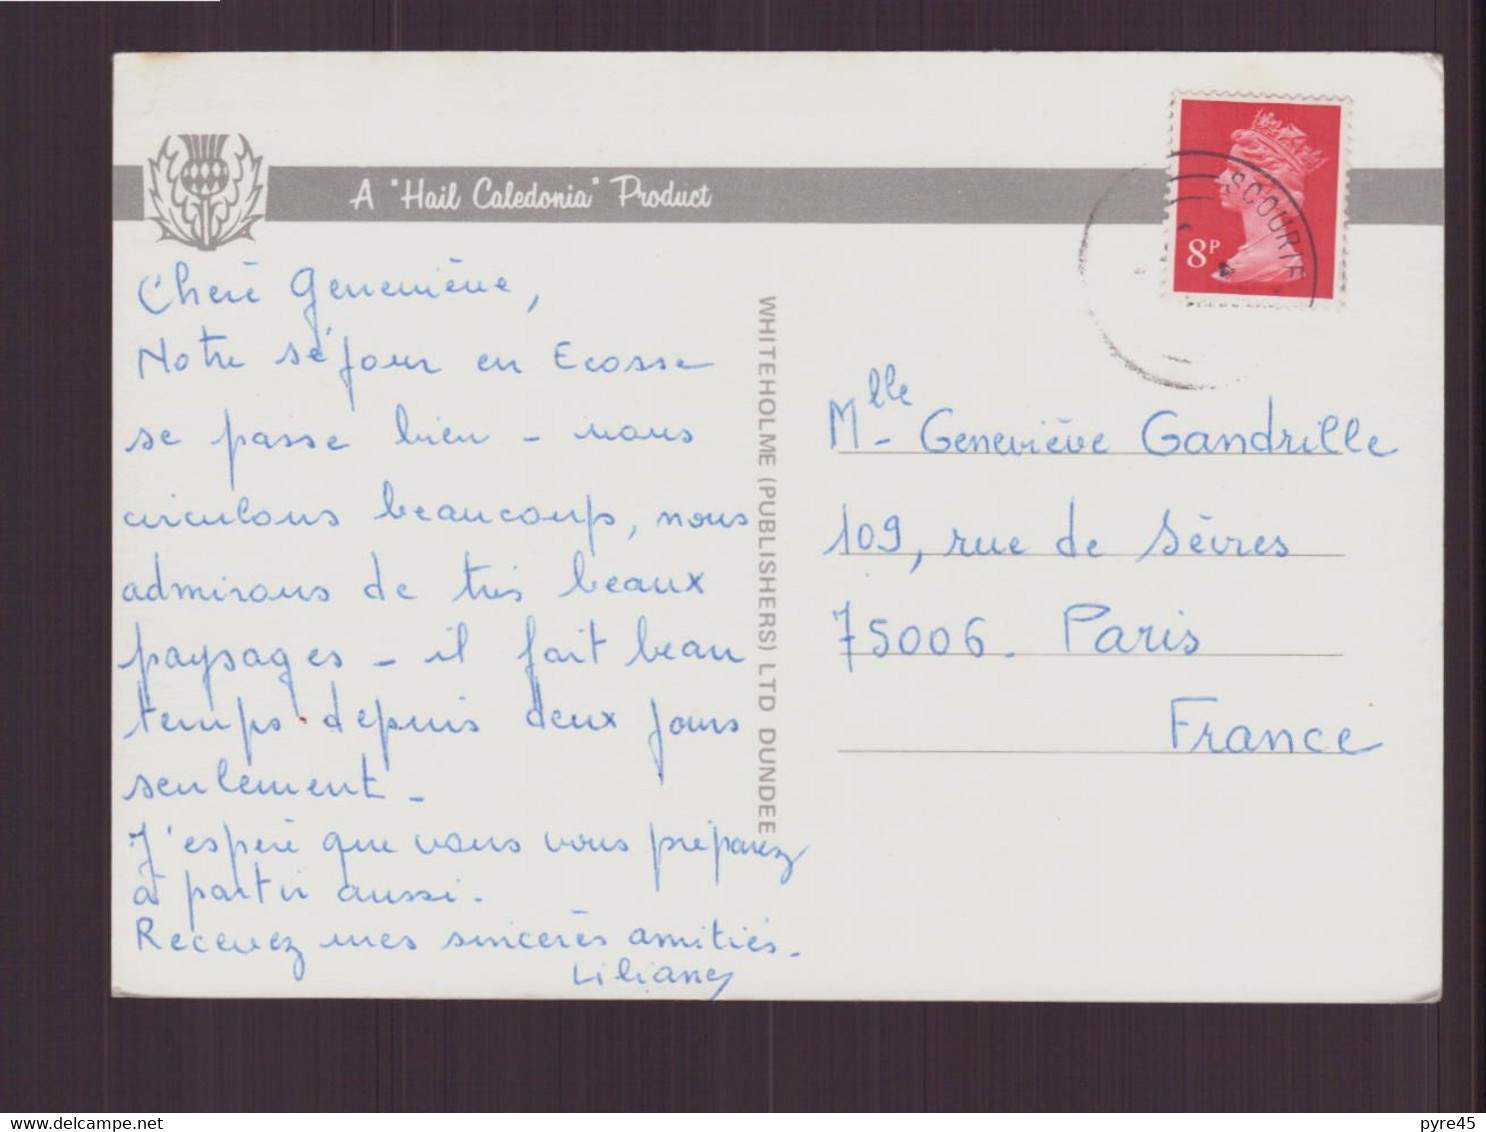 A "Hail Caledonia" Product
8P
SCOURIE
Chère Geneviève,
Notre séjour en Ecosse
se passe bien - nous
circulons beaucoup, nous
admirons de très beaux
paysages - il fait beau
temps depuis deux jours
seulement -
J'espère que vous vous préparez
à partir aussi.
Recevez mes sincères amitiés.
Liliane
WHITEHOLME (PUBLISHERS) LTD DUNDEE
Mlle Geneviève Gandrille
109, rue de Sèvres
75006 - Paris
France
delcampe.net
pyre45